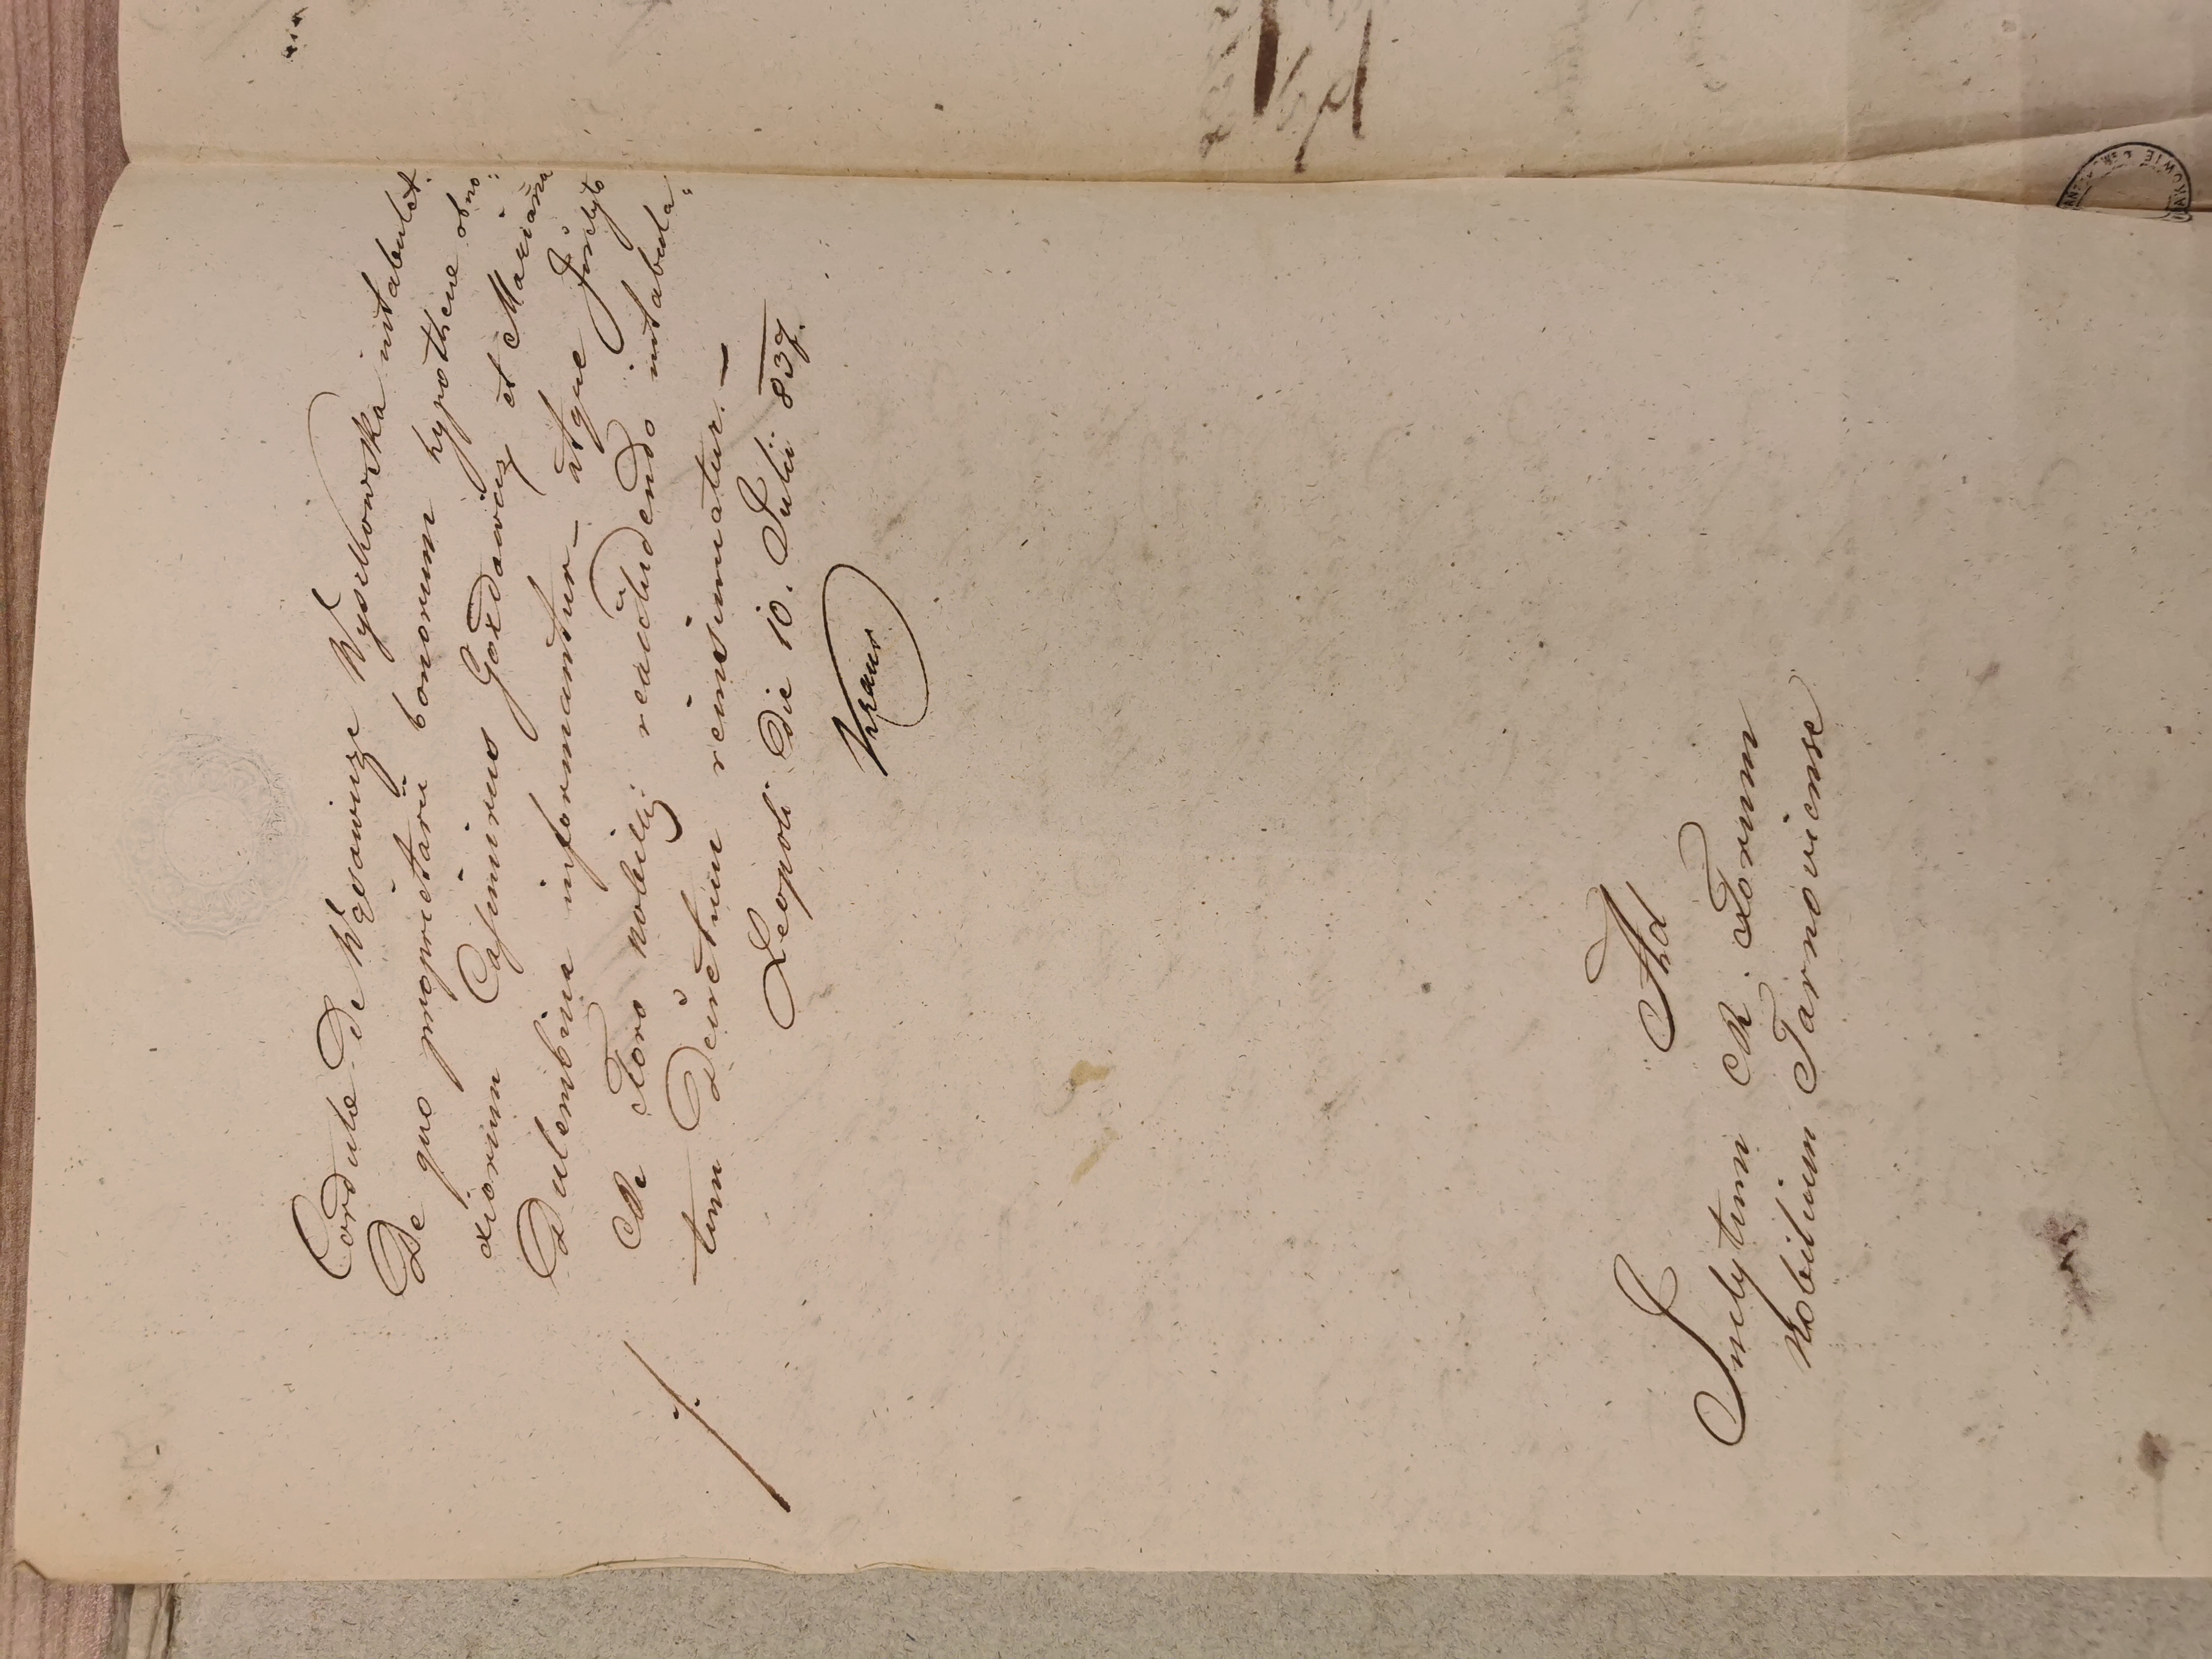 Cordula de Wyszkowska intabulat.
De quo proprietarii bonorum hypothecae obno:
xiorum Casimirus Gozdawicz et Marianna
Dulembina informantur – atque Inclyto
R. Foro nobili: reaccludendo intabula:
tum Decretum reintimatur. –
Leopoli die 10. Julii 837.
Krauss
./.
Ad
Inclytum R. Forum
Nobilium Tarnoviense